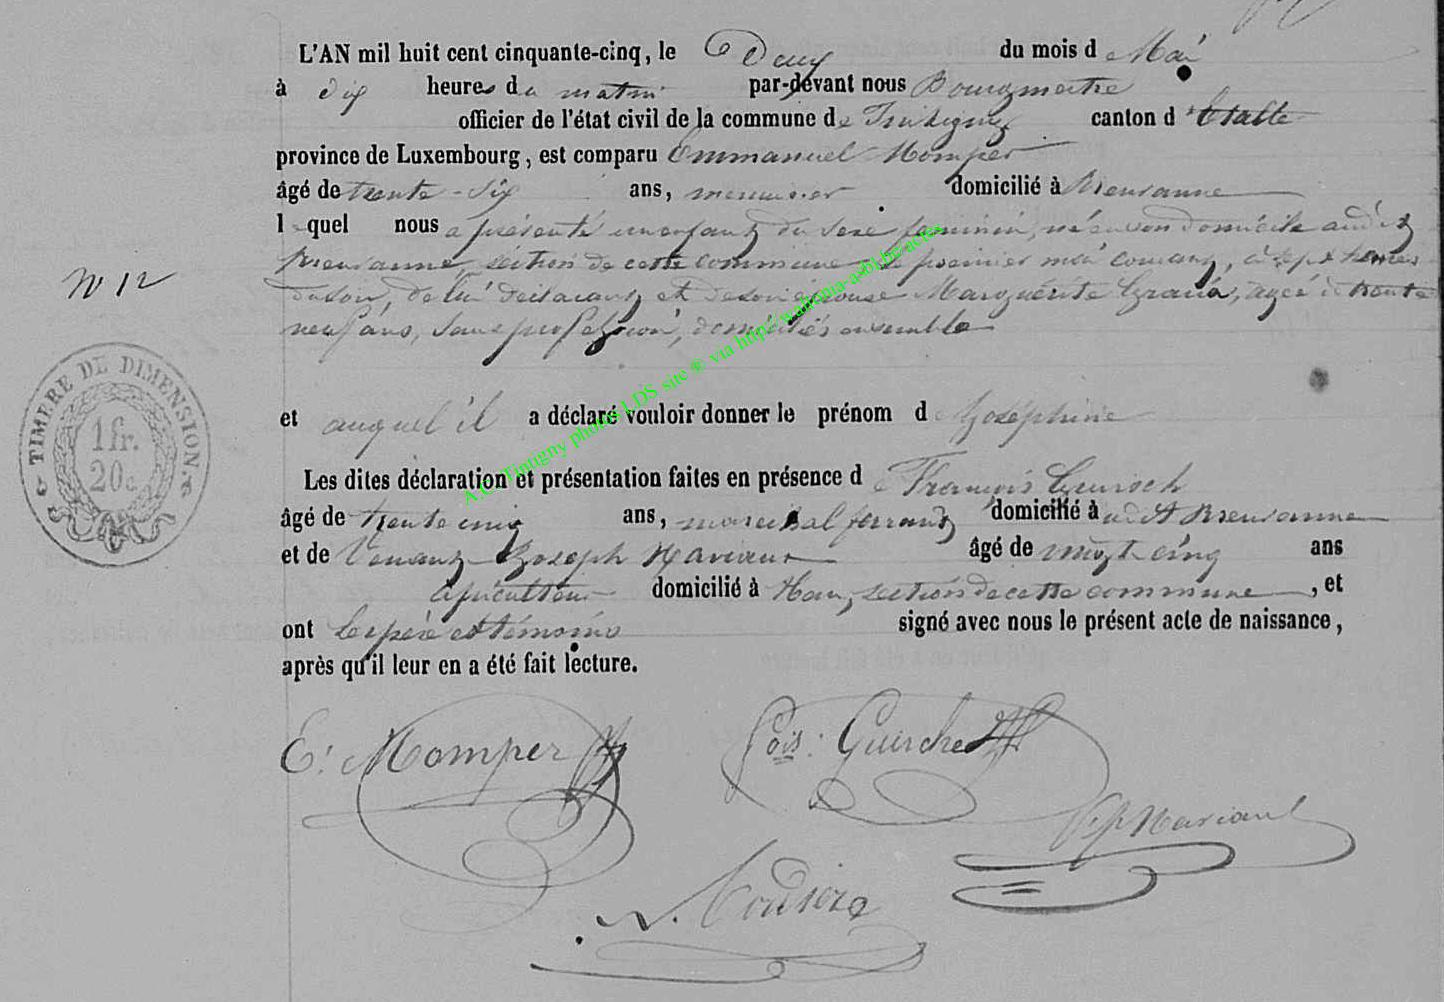 L'AN mil huit cent cinquante-cinq, le Deux du mois de Mai
à dix heures du matin par-devant nous Bourgmestre
officier de l'état civil de la commune de Tintigny canton d'Etalle
province de Luxembourg, est comparu Emmanuel Momper
âgé de trente-six ans, menuisier domicilié à Breuvanne
lequel nous a présenté un enfant du sexe féminin, né en son domicile audit
Breuvanne, section de cette commune le premier mai courant, à sept heures
du soir, de lui déclarant et de son épouse Marguérite, agée de trente
neuf ans, sans profession, domiciliés ensemble
N 12
TIMBRE DE DIMENSION.
1 fr.
20 c
et auquel il a déclaré vouloir donner le prénom de Joséphine
Les dites déclaration et présentation faites en présence de François
âgé de trente cinq ans, marechal ferrant domicilié à audit Breuvanne
et de Venant Joseph âgé de vingt cinq ans
domicilié à Han, section de cette commune, et
ont le père et témoins signé avec nous le présent acte de naissance,
après qu'il leur en a été fait lecture.
A.C. Tintigny photos LDS site ® via http://wallonia-asbl.be/actes
E. Momper
Fois. Guirche